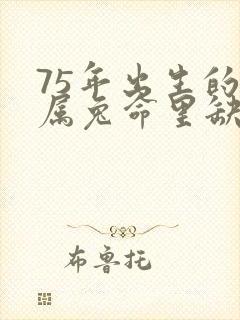 75年出生的
属兔命里缺
布鲁托